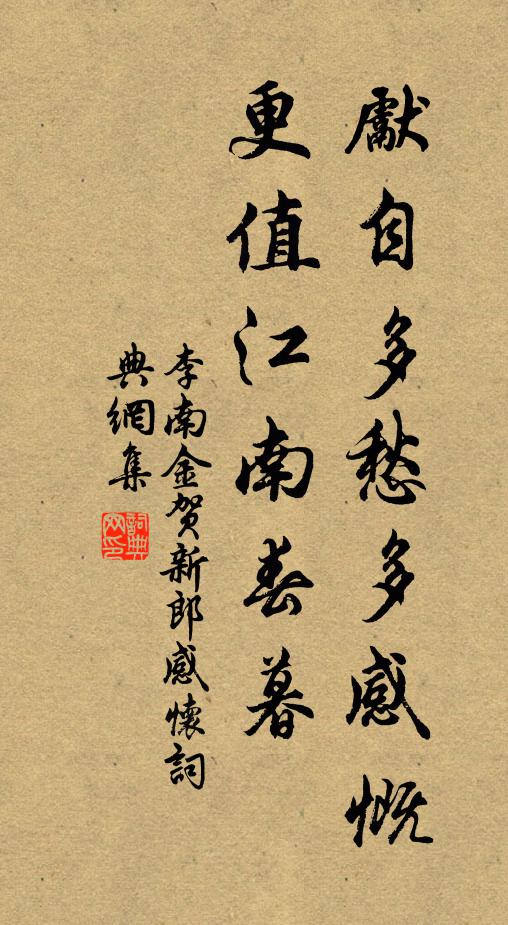 獻自多愁多感慨
更值江南春暮
李南金贺新郎感懷詞
典網集
詞典
网印